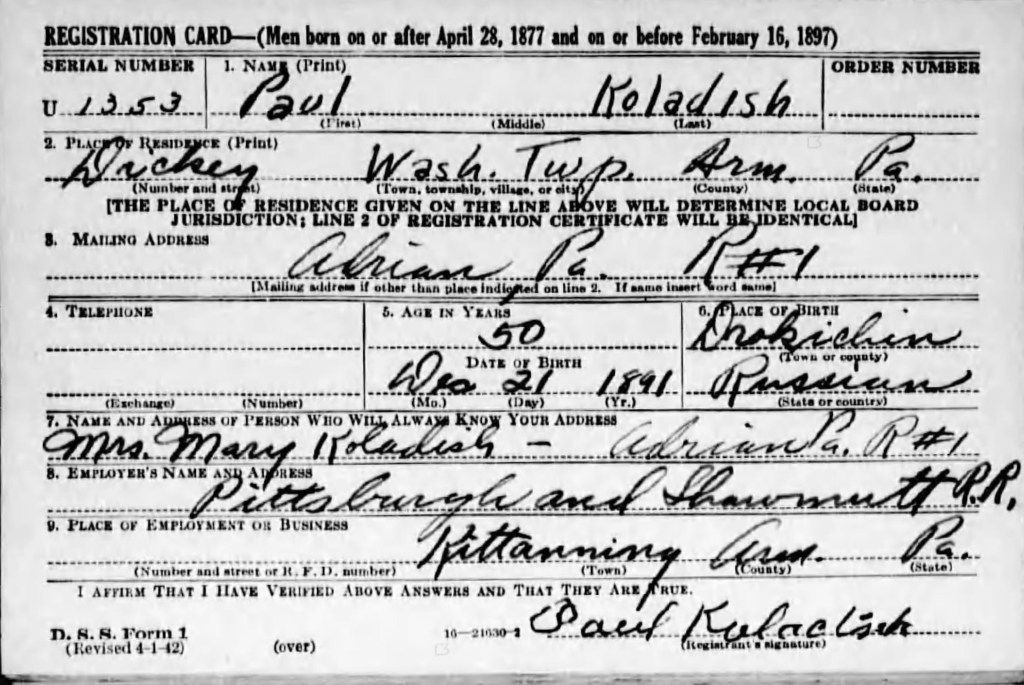 REGISTRATION CARD—(Men born on or after April 28, 1877 and on or before February 16, 1897)
SERIAL NUMBER 1. NAME (Print) ORDER NUMBER
U 1353 Paul Koladish
(First) (Middle) (Last)
2. PLACE OF RESIDENCE (Print)
Dickey Wash. Twp. Arm. Pa.
(Number and street) (Town, township, village, or city) (County) (State)
[THE PLACE OF RESIDENCE GIVEN ON THE LINE ABOVE WILL DETERMINE LOCAL BOARD
JURISDICTION; LINE 2 OF REGISTRATION CERTIFICATE WILL BE IDENTICAL]
3. MAILING ADDRESS
Adrian Pa. R#1
[Mailing address if other than place indicated on line 2. If same insert word same]
4. TELEPHONE 5. AGE IN YEARS 6. PLACE OF BIRTH
50 Drokichin
DATE OF BIRTH (Town or county)
Dec 21 1891 Russian
(Exchange) (Number) (Mo.) (Day) (Yr.) (State or country)
7. NAME AND ADDRESS OF PERSON WHO WILL ALWAYS KNOW YOUR ADDRESS
Mrs. Mary Koladish — Adrian Pa. R#1
8. EMPLOYER'S NAME AND ADDRESS
Pittsburgh and Shawmutt R.R.
9. PLACE OF EMPLOYMENT OR BUSINESS
Kittanning Arm. Pa.
(Number and street or R. F. D. number) (Town) (County) (State)
I AFFIRM THAT I HAVE VERIFIED ABOVE ANSWERS AND THAT THEY ARE TRUE.
D. S. S. Form 1 16—21630-2 Paul Koladish
(Revised 4-1-42) (over) (Registrant's signature)